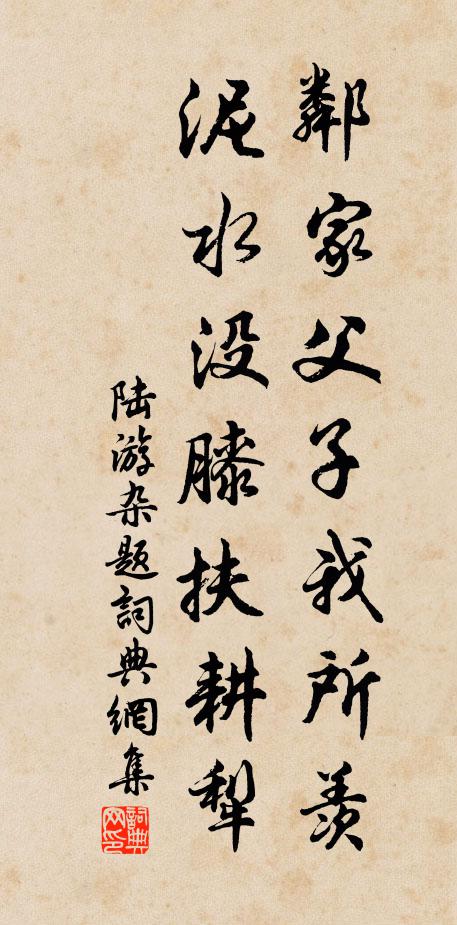 鄰家父子我所羨
泥水没膝扶耕犁
陆游杂题詞典網集
詞典
网印